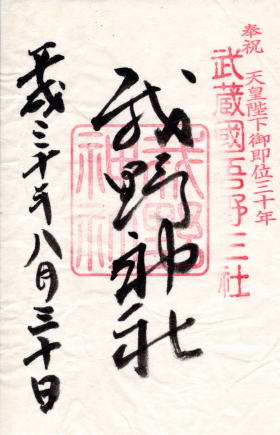 奉祝 天皇陛下御即位三十年
武蔵國吾野三社
我野神社
我野神社
平成三十年八月三十日